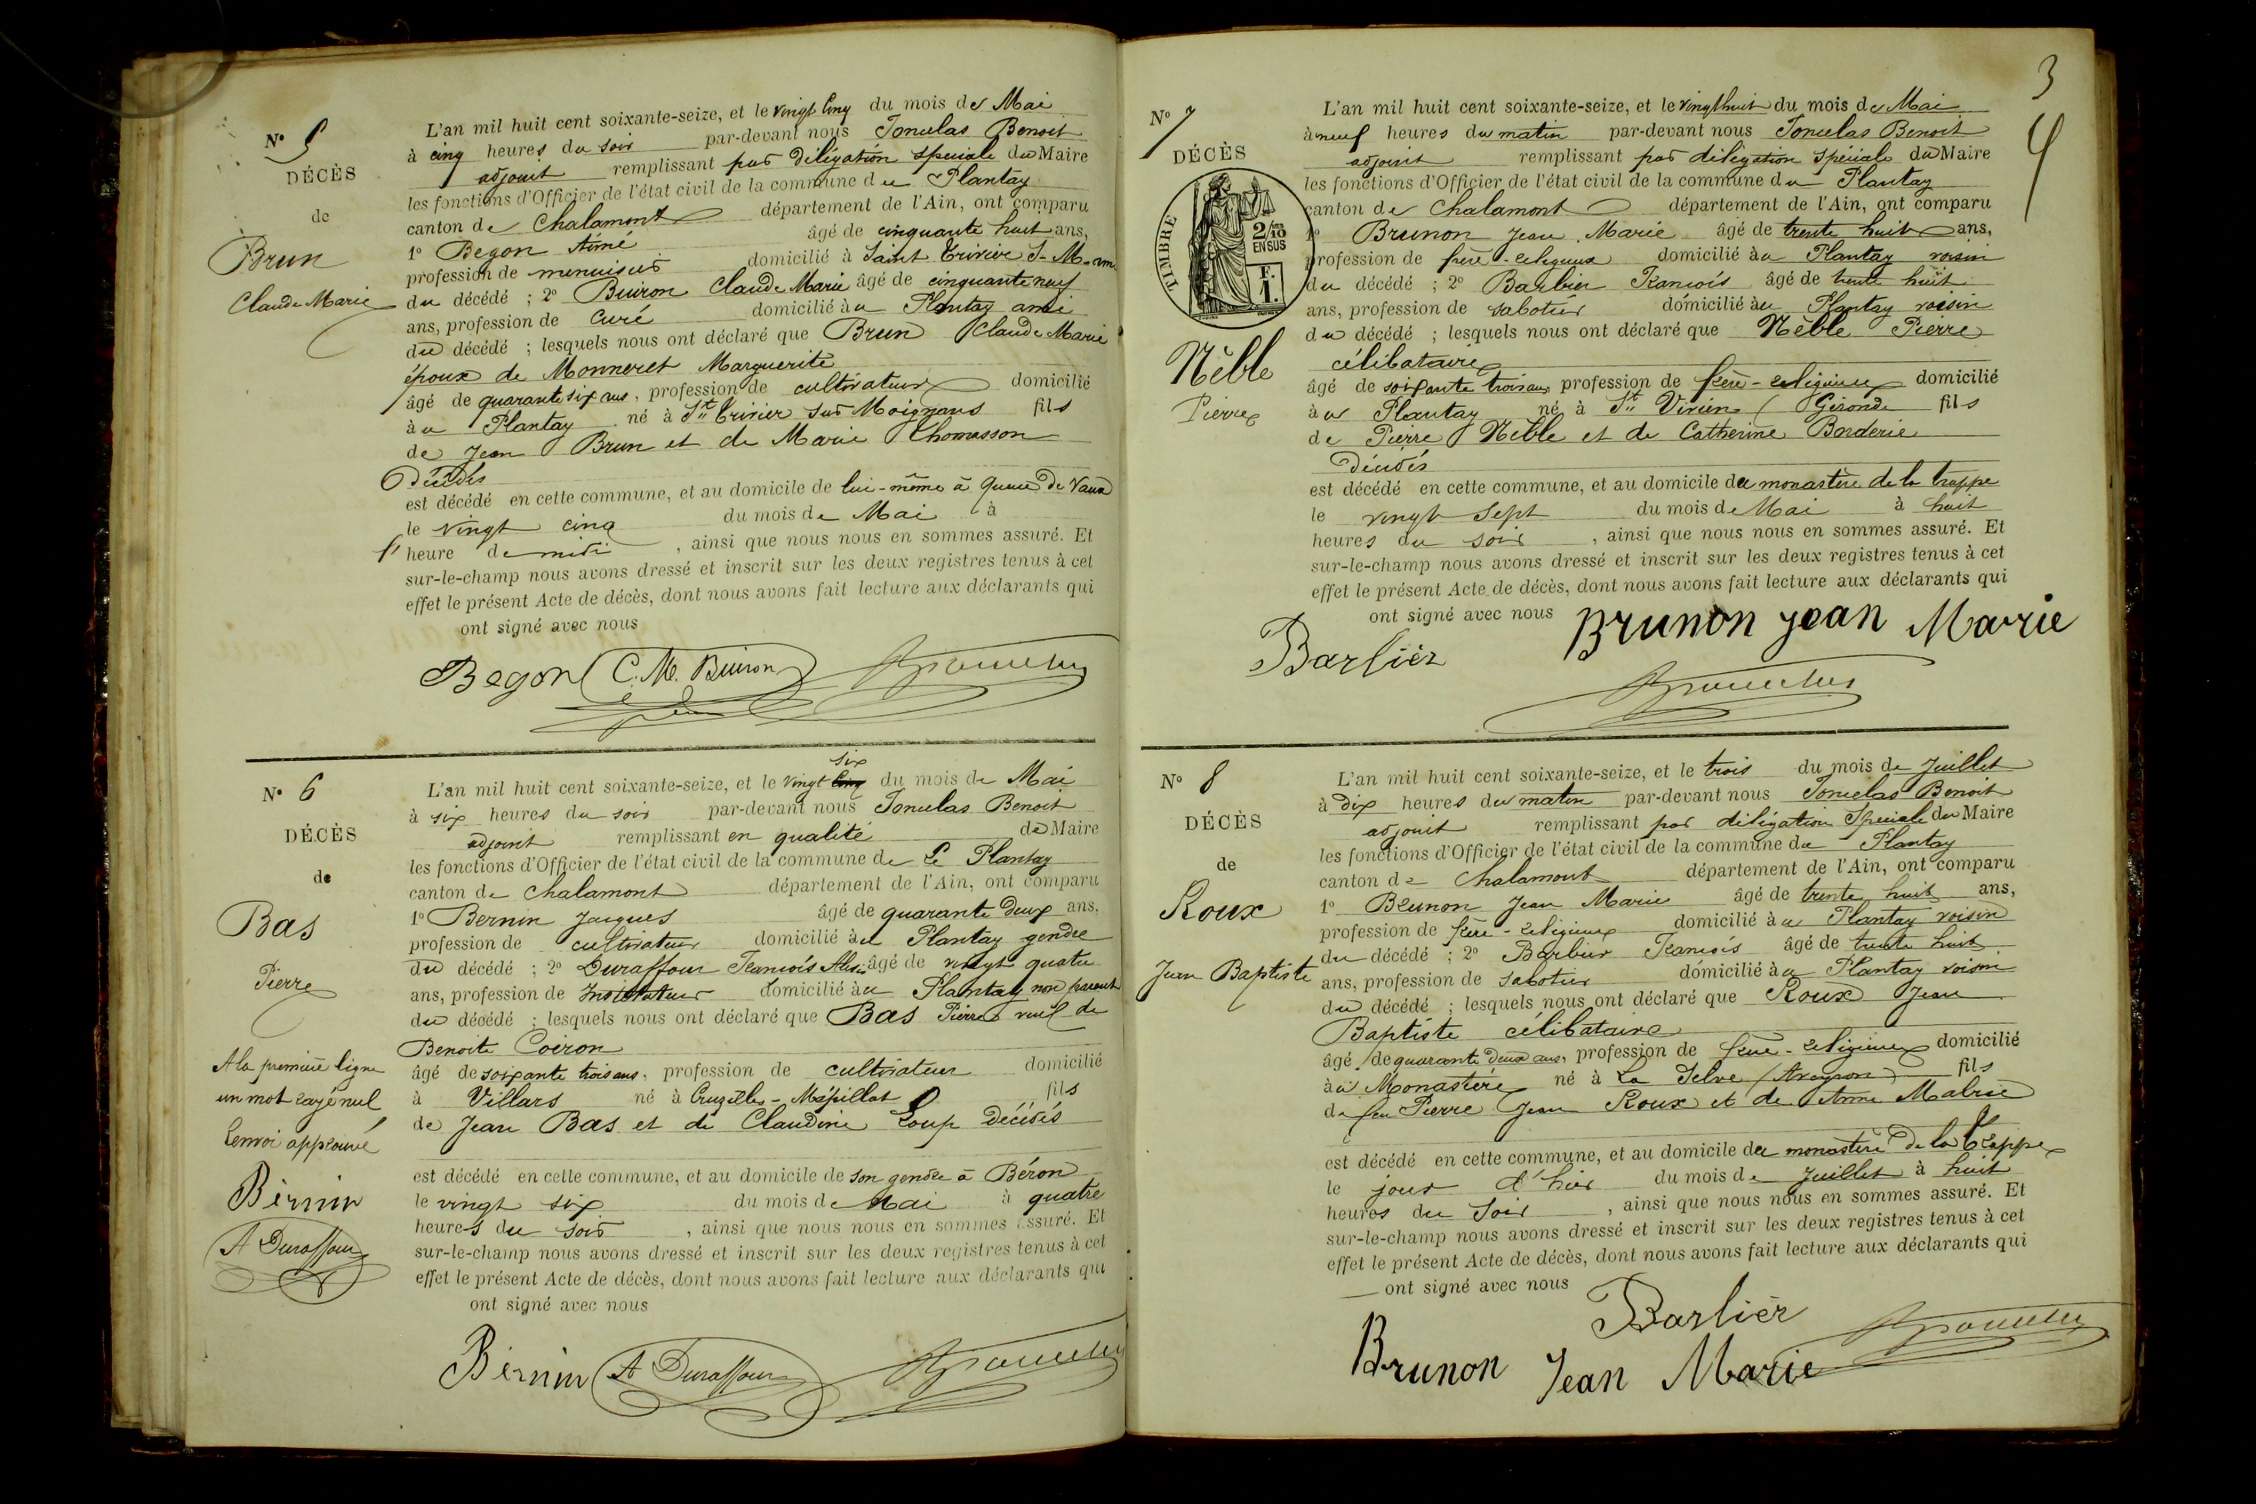 N° 5
DÉCÈS
de
Brun
Claude Marie
L'an mil huit cent soixante-seize, et le vingt cinq du mois de Mai
à cinq heures du soir par-devant nous Benoit
adjoint remplissant par délégation spéciale du Maire
les fonctions d'Officier de l'état civil de la commune du Plantay
canton de Chalamont département de l'Ain, ont comparu
1° Begon Aimé âgé de cinquante huit ans,
profession de menuisier domicilié à Saint Trivier S-M-am
du décédé ; 2° Buiron Claude Marie âgé de cinquante neuf
ans, profession de curé domicilié à u Plantay ami
du décédé ; lesquels nous ont déclaré que Brun Claude Marie
époux de Monneret Marguerite
âgé de quarante six ans, profession de cultivateur domicilié
à u Plantay né à St Trivier sur Moignans fils
de Jean Brun et de Marie Thomasson
Décédés
est décédé en cette commune, et au domicile de lui-même à Queue De Vaux
le vingt cinq du mois de Mai à
l' heure de midi, ainsi que nous nous en sommes assuré. Et
sur-le-champ nous avons dressé et inscrit sur les deux registres tenus à cet
effet le présent Acte de décès, dont nous avons fait lecture aux déclarants qui
ont signé avec nous
Begon C. M. Buiron
N° 6
DÉCÈS
de
Bas
Pierre
A la première ligne
un mot rayé nul
renvoi approuvé
Bernin
A Duraffour
six
L'an mil huit cent soixante-seize, et le vingt cinq du mois de Mai
à six heures du soir par-devant nous Benoit
adjoint remplissant en qualité de Maire
les fonctions d'Officier de l'état civil de la commune de Le Plantay
canton de Chalamont département de l'Ain, ont comparu
1° Bernin Jacques âgé de quarante Deux ans,
profession de cultivateur domicilié à u Plantay gendre
du décédé ; 2° Duraffour François Alexis âgé de vingt quatre
ans, profession de Instituteur domicilié à u Plantay non parent
du décédé ; lesquels nous ont déclaré que Bas Pierre veuf de
Benoite Coiron
âgé de soixante trois ans, profession de cultivateur domicilié
à Villars né à Cruzilles-Mépillat fils
de Jean Bas et de Claudine Loup Décédés
est décédé en cette commune, et au domicile de son gendre à Béron
le vingt six du mois de Mai à quatre
heures du soir, ainsi que nous nous en sommes assuré. Et
sur-le-champ nous avons dressé et inscrit sur les deux registres tenus à cet
effet le présent Acte de décès, dont nous avons fait lecture aux déclarants qui
ont signé avec nous
Bernin A Duraffour
3
4
N° 7
DÉCÈS
TIMBRE
2/10
EN SUS
F.
1.
Nèble
Pierre
L'an mil huit cent soixante-seize, et le vingt huit du mois de Mai
à neuf heures du matin par-devant nous Benoit
adjoint remplissant par délégation spéciale du Maire
les fonctions d'Officier de l'état civil de la commune du Plantay
canton de Chalamont département de l'Ain, ont comparu
1° Brunon Jean Marie âgé de trente huit ans,
profession de frère-religieux domicilié à u Plantay voisin
du décédé ; 2° Barbier François âgé de trente huit
ans, profession de sabotier domicilié à u Plantay voisin
du décédé ; lesquels nous ont déclaré que Nèble Pierre
célibataire
âgé de soixante trois ans, profession de frère-religieux domicilié
à u Plantay né à St Vivien (Gironde fils
de Pierre Nèble et de Catherine Borderie
Décédés
est décédé en cette commune, et au domicile du monastère de la trappe
le vingt sept du mois de Mai à huit
heures du soir, ainsi que nous nous en sommes assuré. Et
sur-le-champ nous avons dressé et inscrit sur les deux registres tenus à cet
effet le présent Acte de décès, dont nous avons fait lecture aux déclarants qui
ont signé avec nous Brunon Jean Marie
Barbier
N° 8
DÉCÈS
de
Roux
Jean Baptiste
L'an mil huit cent soixante-seize, et le trois du mois de Juillet
à dix heures du matin par-devant nous Benoit
adjoint remplissant par délégation Spéciale du Maire
les fonctions d'Officier de l'état civil de la commune du Plantay
canton de Chalamont département de l'Ain, ont comparu
1° Brunon Jean Marie âgé de trente huit ans,
profession de frère-religieux domicilié à u Plantay voisin
du décédé ; 2° Barbier François âgé de trente huit
ans, profession de sabotier domicilié à u Plantay voisin
du décédé ; lesquels nous ont déclaré que Roux Jean
Baptiste célibataire
âgé de quarante Deux ans, profession de frère-religieux domicilié
à u Monastère né à La Selve (Aveyron) fils
de feu Pierre Jean Roux et de Anne
est décédé en cette commune, et au domicile du monastère De la Trappe
le jour d'hier du mois de Juillet à huit
heures du Soir, ainsi que nous nous en sommes assuré. Et
sur-le-champ nous avons dressé et inscrit sur les deux registres tenus à cet
effet le présent Acte de décès, dont nous avons fait lecture aux déclarants qui
ont signé avec nous
Barbier
Brunon Jean Marie